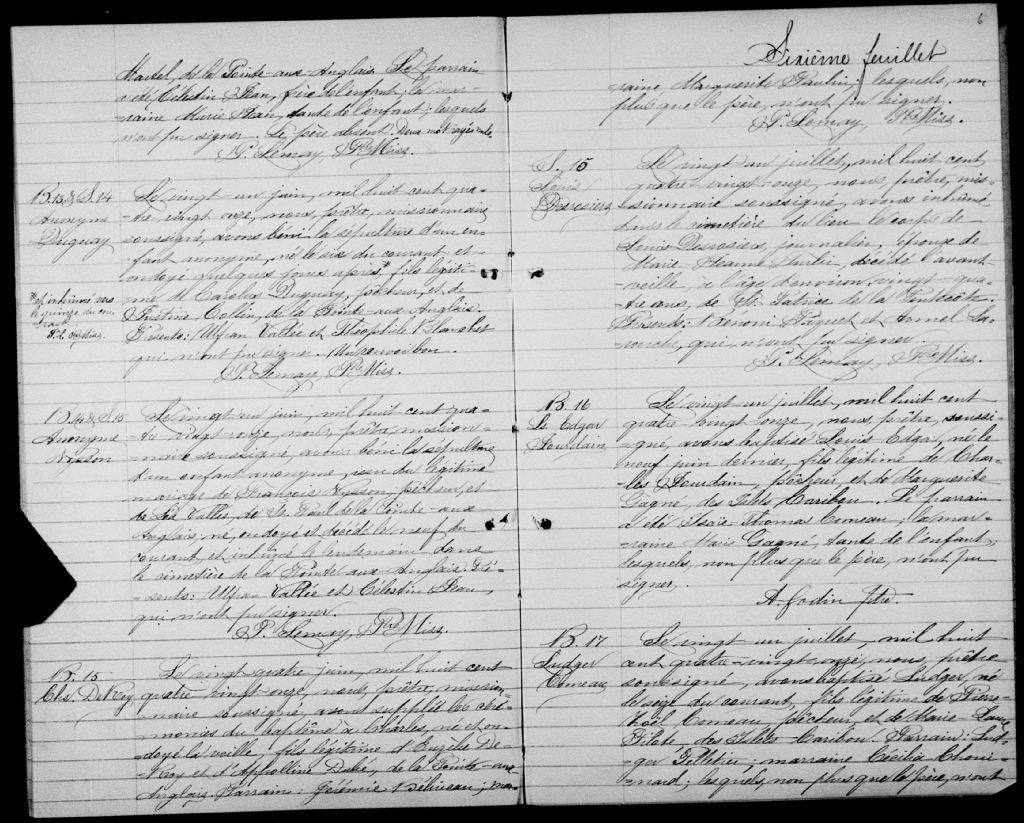 Martel, de la Pointe-aux-Anglais. Le parrain
a été Célestin Jean, frère de l'enfant; la mar-
raine Marie Jean, tante de l'enfant; lesquels
n'ont pu signer. Le père absent. Deux mots rayés nuls
P. Lemay, Ptre Miss.
B. 13 & S. 14
Anonyme
Duguay
Le vingt un juin, mil huit cent qua-
tre vingt onze, nous, prêtre, missionnaire
soussigné, avons béni la sépulture d'un en-
fant anonyme, né le six du courant et
ondoyé quelques jours après*, fils légiti-
me de Duguay, pêcheur, et de
Justine Collin, de la Pointe-aux-Anglais.
Présents: Ulfran Vallée et Théophile Blanchet
qui n'ont pu signer. Un renvoi bon.
P. Lemay, Ptre Miss.
*et inhumé
le quinze du cou-
rant
P. L. Ptre Miss.
B. 14 & S. 15
Anonyme
Le vingt un juin, mil huit cent qua-
tre vingt onze, nous, prêtre mission-
naire soussigné, avons béni la sépulture
d'un enfant anonyme, issu du légitime
mariage de François, pêcheur, et
de Léa Vallée, de St. Paul de la Pointe-aux
Anglais, né, ondoyé et décédé le neuf du
courant et inhumé le lendemain dans
le cimetière de la Pointe aux Anglais. Pré-
sents: Ulfran Vallée et Célestin Jean,
qui n'ont pu signer.
P. Lemay, Ptre Miss.
B. 15
Chs. DeRoy
Le vingt quatre juin, mil huit cent
quatre-vingt-onze, nous, prêtre, mission-
naire soussigné, avons suppléé les céré-
monies du baptême à Charles, né et on-
doyé la veille, fils légitime d'Euzèbe De-
Roy et d'Appolline Dubé, de la Pointe-aux
Anglais. Parrain: Jérémie Béliveau; mar-
6
Sixième feuillet
raine, Marguerite Paulin; lesquels, non
plus que le père, n'ont pu signer.
P. Lemay, Ptre Miss.
S. 15
Louis
Desrosiers
Le vingt un juillet, mil huit cent
quatre-vingt-onze, nous, prêtre, mis-
sionnaire soussigné, avons inhumé
dans le cimetière du lieu le corps de
Louis Desrosiers, journalier, époux de
Marie, décédé l'avant
veille, à l'âge d'environ vingt qua-
tre ans, de St. Patrice de la
Présents: Bénoni Paquet et
qui n'ont pu signer.
P. Lemay, Ptre Miss.
B. 16
Ls. Edgar
Jourdain
Le vingt un juillet, mil huit cent
quatre vingt onze, nous, prêtre, soussi-
gné, avons baptisé Louis Edgar, né le
neuf juin dernier, fils légitime de Char-
les Jourdain, pêcheur, et de Marguerite
Gagné, des Islets Caribou. Le parrain
a été Isaïe Thomas Comeau; la mar-
raine Marie Gagné, tante de l'enfant;
lesquels, non plus que le père, n'ont pu
signer.
A. Godin Ptre.
B. 17
Ludger
Comeau
Le vingt un juillet, mil huit
cent quatre-vingt onze, nous, prêtre
soussigné, avons baptisé Ludger, né
le onze du courant, fils légitime de Pierre
Noël Comeau, pêcheur, et de Marie Laure
Pilote, des Islets-Caribou. Parrain: Lud-
ger Pelletier; marraine Cécilia Choui-
nard; lesquels, non plus que le père, n'ont